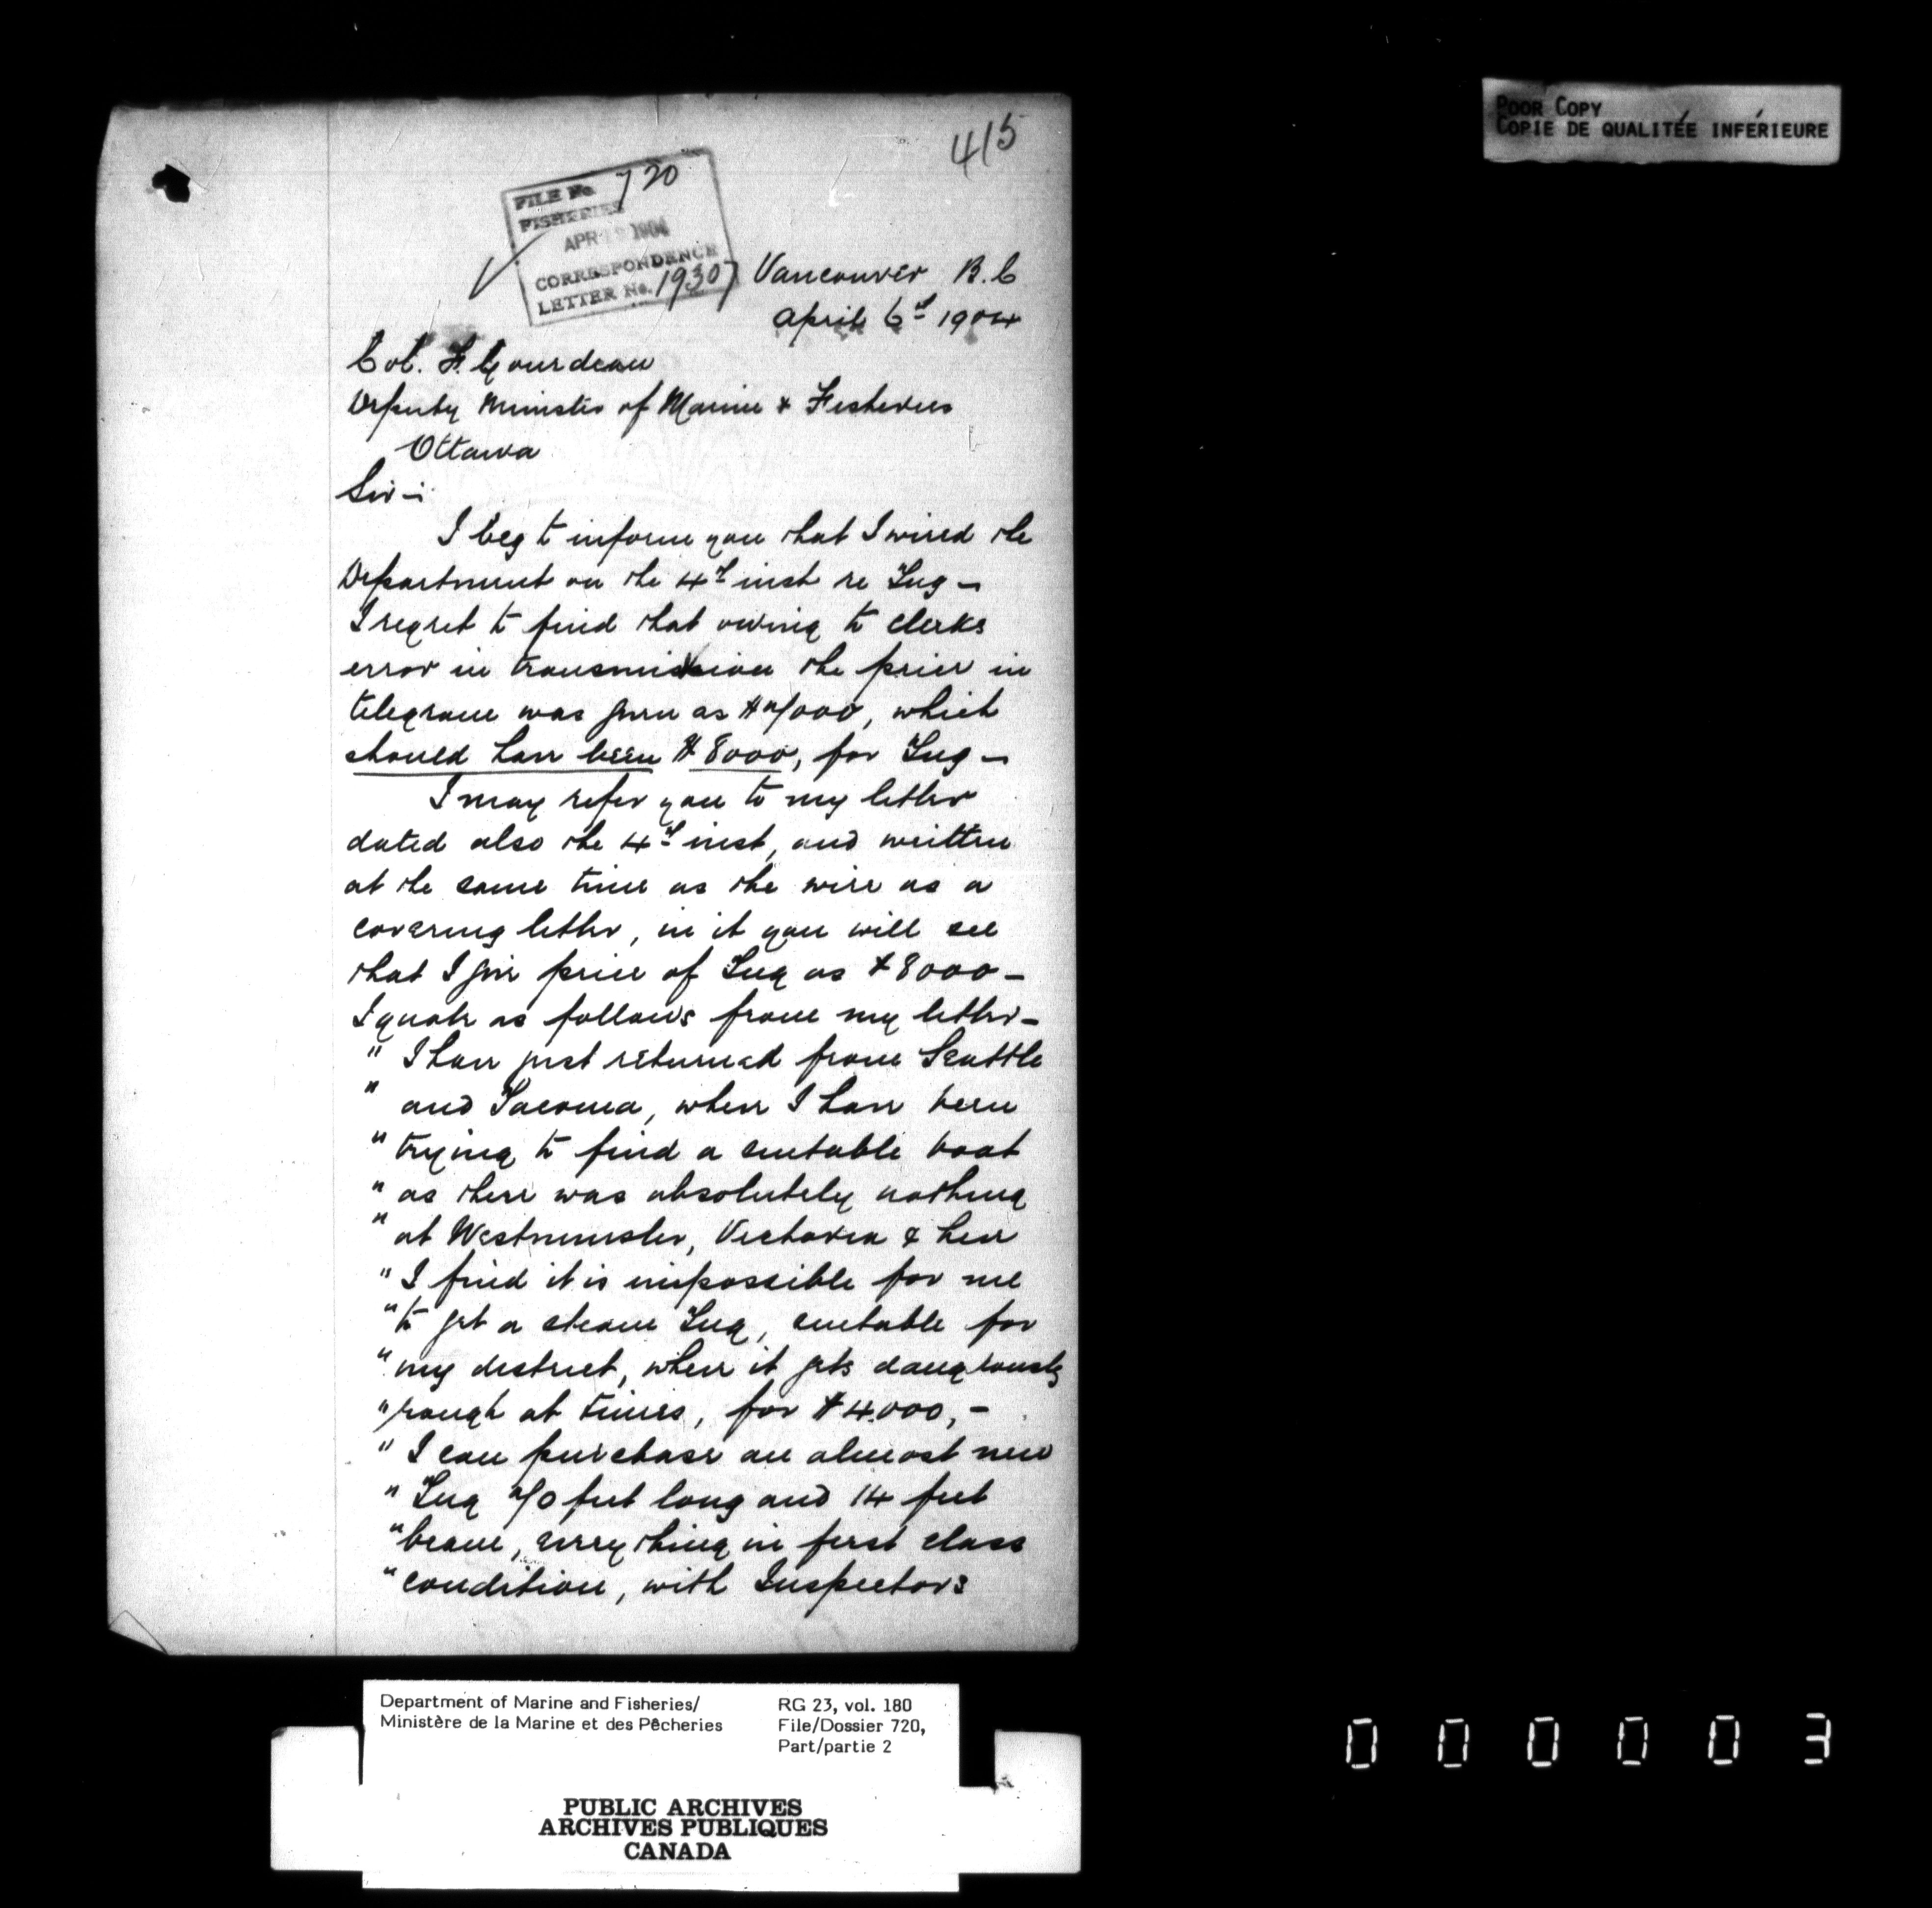 POOR COPY
COPIE DE QUALITÉE INFÉRIEURE
415
FILE No. 720
FISHERIES
APR 1904
CORRESPONDENCE
LETTER No. 19307
Vancouver B.C
April 6th 1904
Col. F. Gourdeau
Deputy Minister of Marine & Fisheries
Ottawa
Sir-:
I beg to inform you that I wired the
Department on the 4th inst re Tug -
I regret to find that owing to clerks
error in transmission the price in
telegram was given as $7000, which
should have been $8000, for Tug -
I may refer you to my letter
dated also the 4th inst, and written
at the same time as the wire as a
covering letter, in it you will see
that I give price of Tug as $8000 -
I quote as follows from my letter -
" I have just returned from Seattle
" and Tacoma, where I have been
" trying to find a suitable boat
" as there was absolutely nothing
" at Westminster, Victoria & here
" I find it is impossible for me
" to get a steam Tug, suitable for
" my district, where it gets dangerously
" rough at times, for $4.000, -
" I can purchase an almost new
" Tug 70 feet long and 14 feet
" beam, everything in first class
" condition, with Inspectors
Department of Marine and Fisheries/
Ministère de la Marine et des Pêcheries
RG 23, vol. 180
File/Dossier 720,
Part/partie 2
PUBLIC ARCHIVES
ARCHIVES PUBLIQUES
CANADA
000003